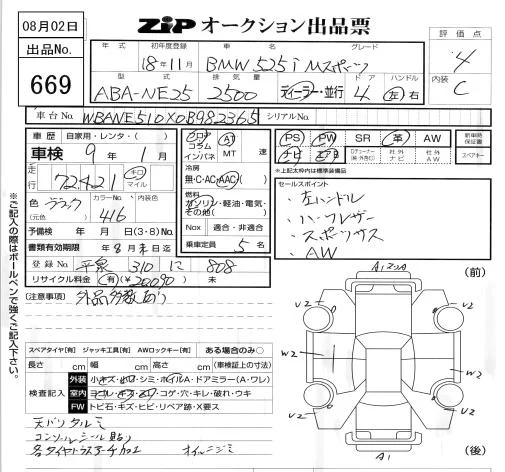 08月02日
出品No.
669
ZIP オークション出品票
評価点
4
内装
C
年式 初年度登録 車名 グレード
18年11月 BMW 525i Mスポーツ
型式 排気量 ドア ハンドル
ABA-NE25 2500 ディーラー・並行 4 左 右
車台No. WBANE510X0B982365 シリアルNo.
車歴 自家用・レンタ・( )
車検 9年1月
走行 72,421 キロ マイル
色 ブラック カラーNo. 内装色
(元色) 416
予備検 年 月 日(3・8)No.
書類有効期限 年8月末日迄
登録No. 310 に 808
リサイクル料金 有(¥20,090) 未
(注意事項) 外品
フロア
コラム
インパネ
AT
MT 速
冷房
無・C・AC・AAC
燃料
ガソリン・軽油・電気・
その他( )
Nox 適合・非適合
乗車定員 5名
PS PW SR 革 AW
ナビ エアB 社外ナビ 社外AW
新車時保証書
スペアキー
*上記太枠内は標準装備品
セールスポイント
・左ハンドル
・ハーフレザー
・スポーツサス
・AW
※ご記入の際はボールペンで強くご記入下さい。
スペアタイヤ[有] ジャッキ工具[有] AWロックキー[有] ある場合のみ○
長さ cm 幅 cm 高さ cm (車検証上の寸法)
検査記入
外装 小キズ・小凹・シミ・ホイルA・ドアミラー(A・ワレ)
室内 ヨゴレ・キズ・スレ・コゲ・穴・キレ・破れ・ウキ
FW トビ石・キズ・ヒビ・リペア跡・X要ス
天バリタルミ
コンソールシール貼り
各タイヤハウスアーチ加工 オイルニジミ
(前)
V2
V2
W2
W2
V2
V2
A1
(後)